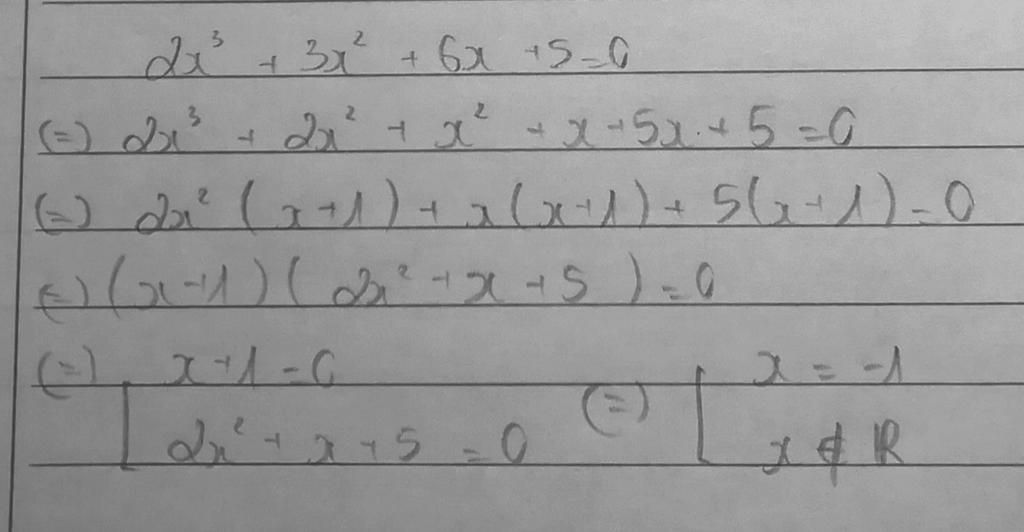 2x³ + 3x² + 6x + 5 = 0
(=) 2x³ + 2x² + x² + x + 5x + 5 = 0
(=) 2x² (x+1) + x(x+1) + 5(x+1) = 0
(=) (x+1)(2x² + x + 5) = 0
(=) [ x+1 = 0 (=) [ x = -1
2x² + x + 5 = 0 x ∉ ℝ